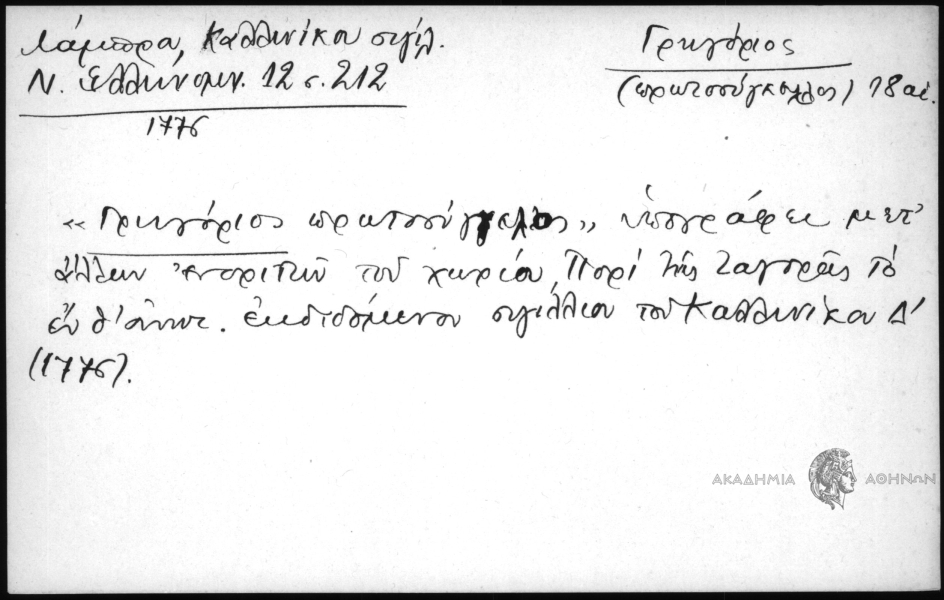 Λάμπρα, Καλλινίκου σιγίλ.
Ν. Ελληνομν. 12 σ. 212
1776
Γρηγόριος
(πρωτοσύγκελλος) 18 αι.
«Γρηγόριος πρωτοσύγγελος» υπογράφει μετ'
άλλων ενοριτών του χωρίου Πορί της Ζαγοράς το
εν εκδιδόμενον σιγίλλιον του Καλλινίκου Δ'
(1776).
ΑΚΑΔΗΜΙΑ ΑΘΗΝΩΝ